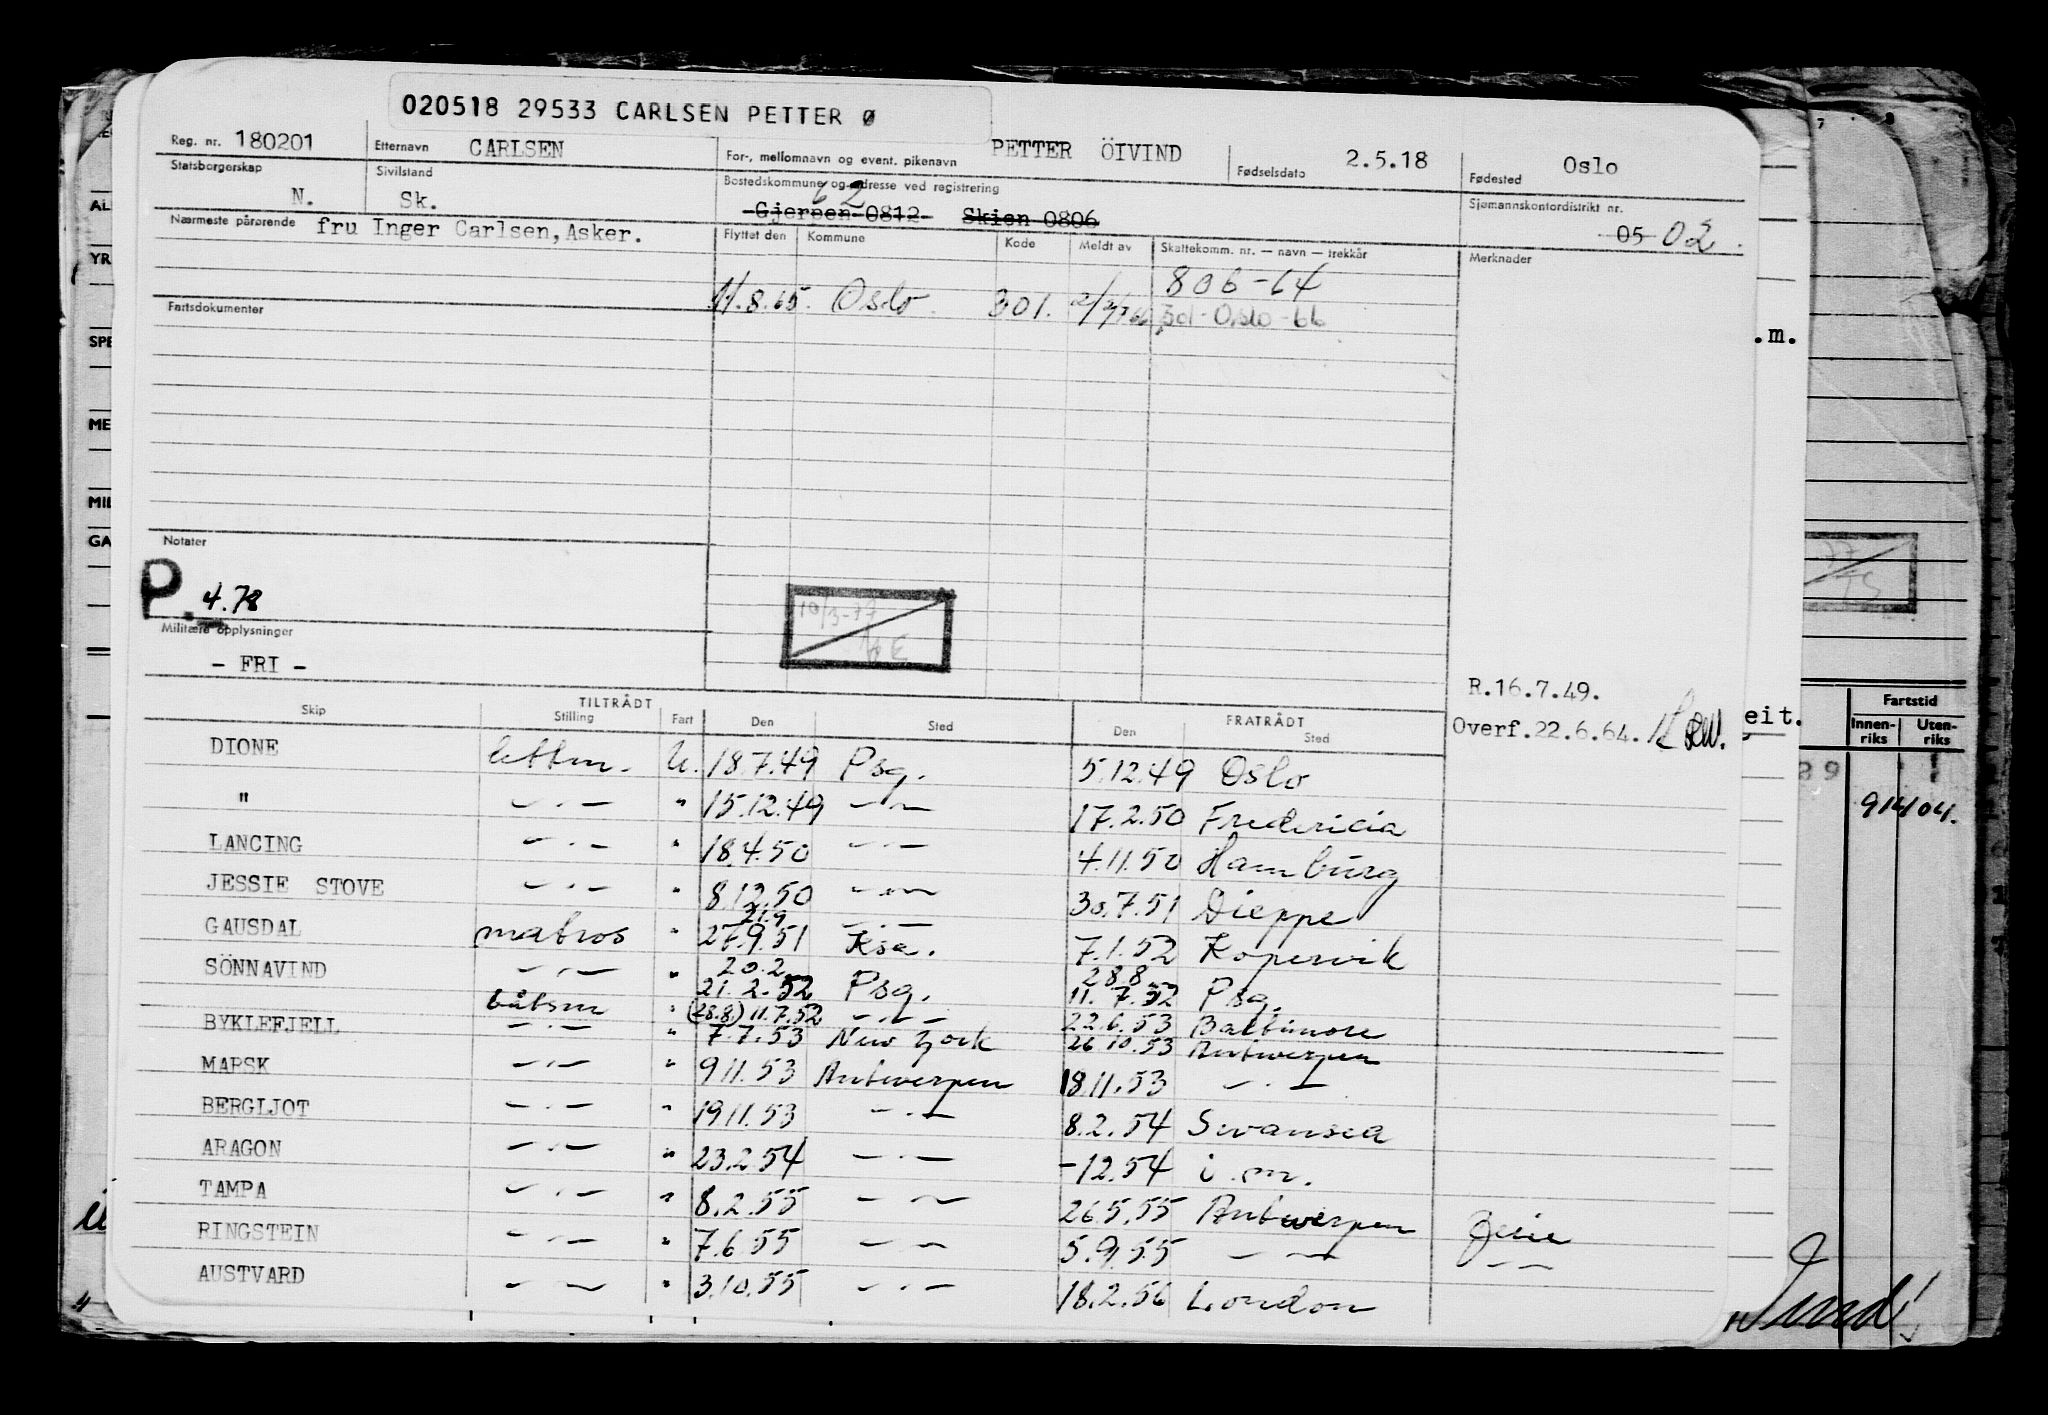 020518 29533 CARLSEN PETTER Ø
Reg. nr. 180201 Etternavn CARLSEN For-, mellomnavn og event. pikenavn PETTER ÖIVIND Fødselsdato 2.5.18 Fødested Oslo
Statsborgerskap N. Sivilstand Sk. Bostedskommune og adresse ved registrering 62 Gjerpen 0812 Skien 0806 Sjømannskontordistrikt nr. 05 02.
Nærmeste pårørende fru Inger Carlsen, Asker. Flyttet den Kommune Kode Meldt av Skattekomm. nr. — navn — trekkår Merknader
806-64
11.8.65. Oslo. 301. 301-Oslo-66
Fartsdokumenter
Notater
P. 4.78
10/3-77
Militære opplysninger
- FRI -
R.16.7.49.
Overf.22.6.64.
Skip TILTRÅDT Stilling Fart Den Sted FRATRÅDT Den Sted
DIONE lettm. U. 18.7.49 Psg. 5.12.49 Oslo
" — . — " 15.12.49 — " — 17.2.50 Fredericia
LANCING — . — " 18.4.50 — . — 4.11.50 Hamburg
JESSIE STOVE — . — " 8.12.50 — " — 30.7.51 Dieppe
21.9 — . —
GAUSDAL matros " 27.9.51 Ksa. 7.1.52 Kopervik
20.2 28.8
SÖNNAVIND — . — " 21.2.52 Psg. 11.7.52 Psg.
båtsm " (28.8.) 11.7.52 — . — 22.6.53 Baltimore
BYKLEFJELL — . — " 7.7.53 New York 26.10.53 Antwerpen
MARSK — . — " 9.11.53 Antwerpen 18.11.53 — . —
BERGLJOT — . — " 19.11.53 — . — 8.2.54 Swansea
ARAGON — . — " 23.2.54 — . — -12.54 i .m.
TAMPA — . — " 8.2.55 — . — 26.5.55 Antwerpen
RINGSTEIN — . — " 7.6.55 — . — 5.9.55 — " —
AUSTVARD — . — " 3.10.55 — . — 18.2.56 London
AL
YR
SPE
ME
MIL
GA
.m.
eit.
Fartstid
Innen-riks Uten-riks
89